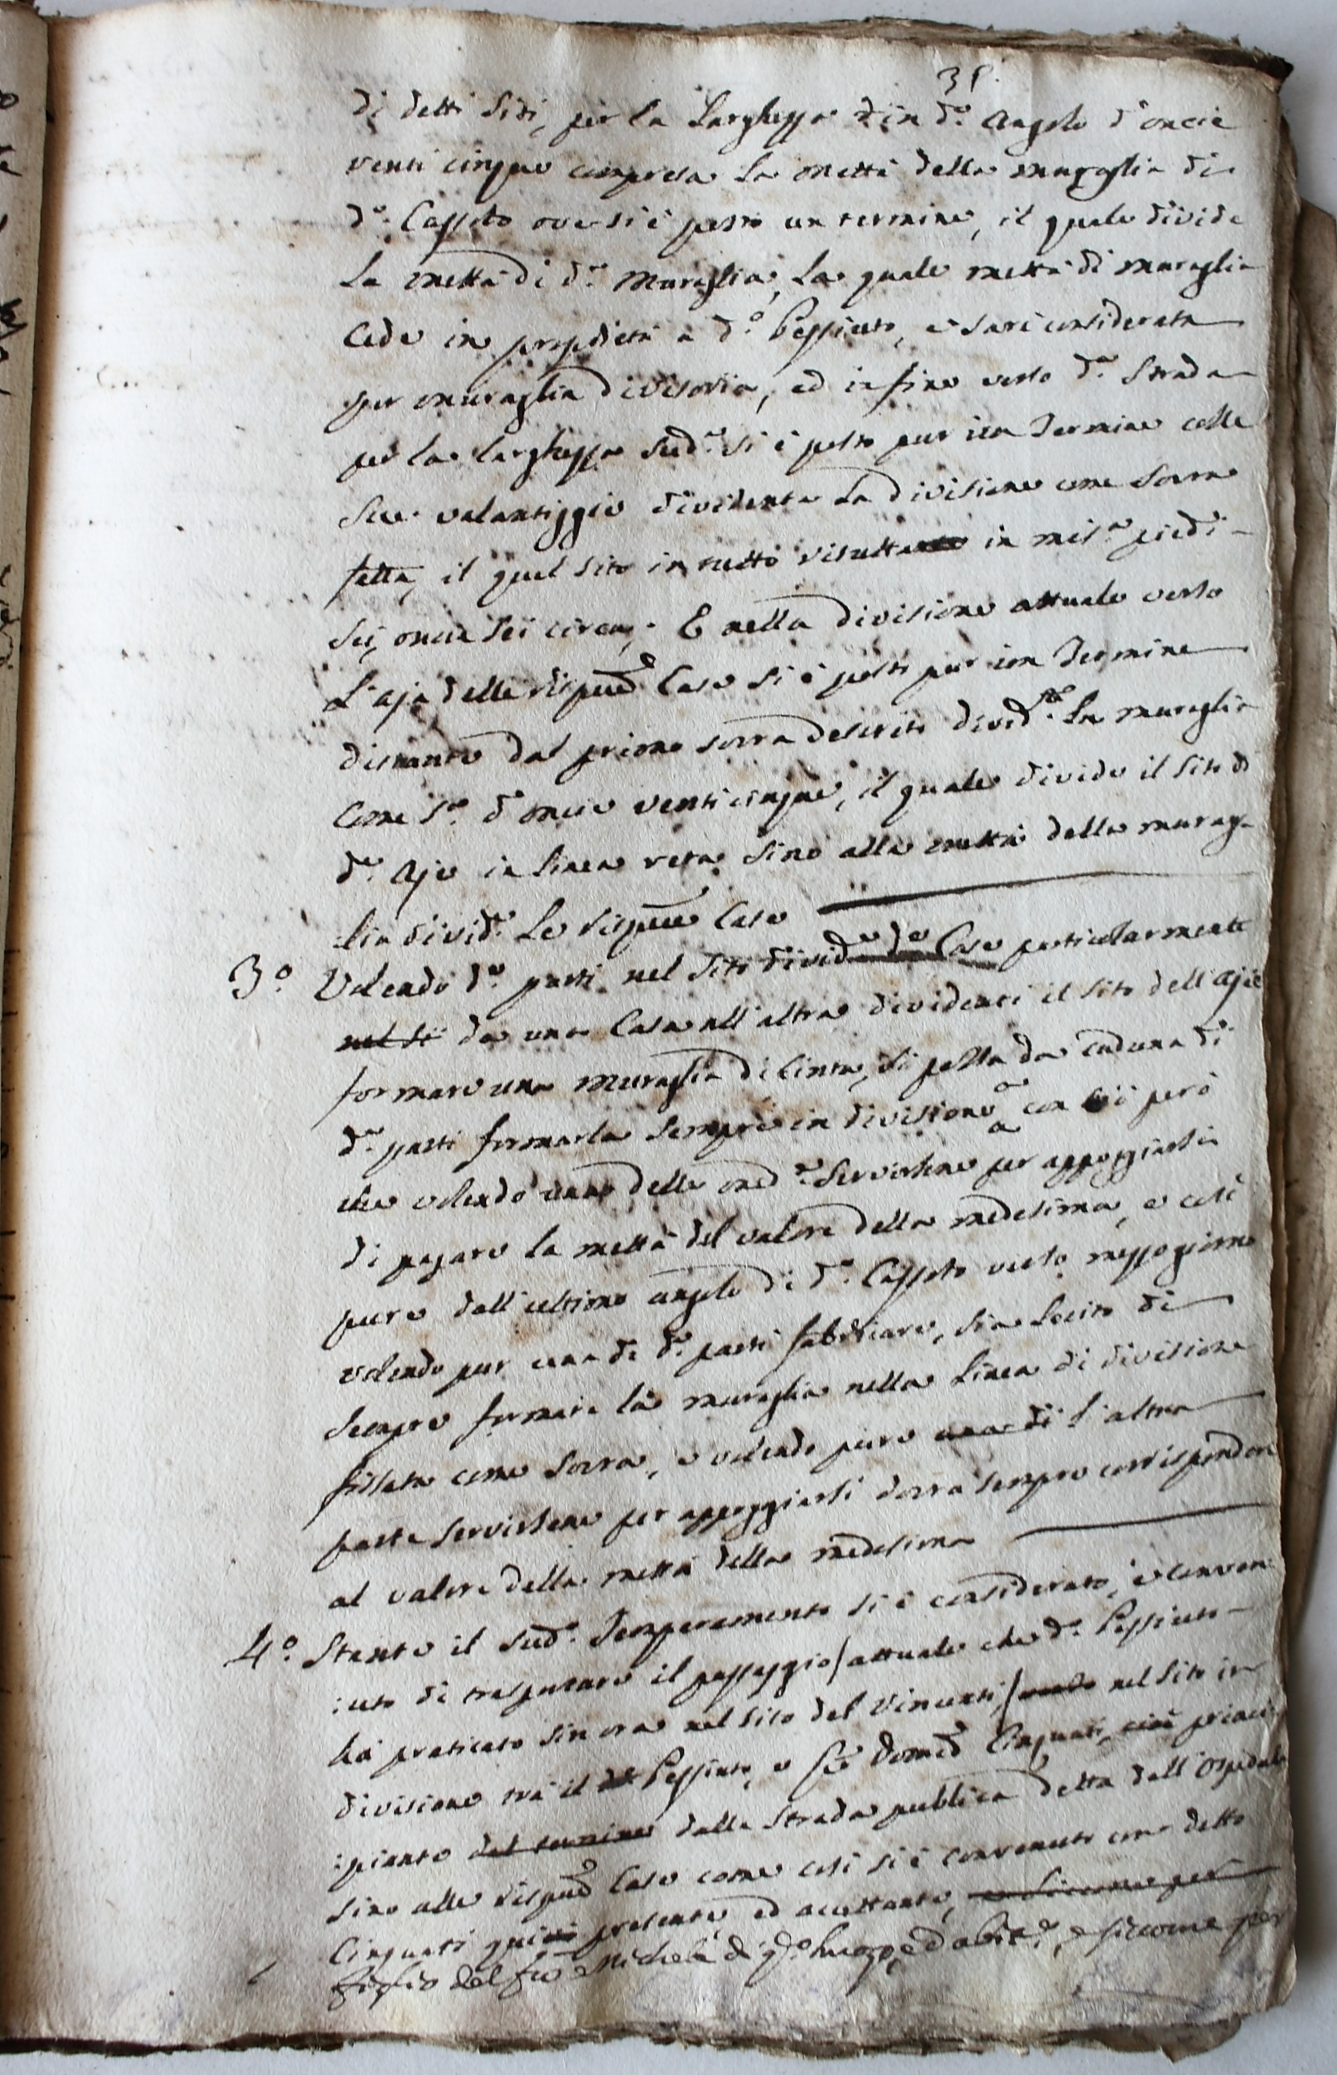 35.
di detti Siti, per la Larghezza in d.º Angolo d'oncie
venti cinque compresa la mettà della muraglia di
d.º Cassoto ove si è posto un termine, il quale divide
la mettà di d.ª Muraglia, la quale mettà di muraglia
cede in proprietà a d.º Pessiuto, e sarà considerata
per muraglia divisoria, ed in fine verso d.ª Strada
per la larghezza sud.ª si è posto pur un Termine colle
Sue valantiggie dividente la divisione come sovra
fatta, il qual sito in tutto risulta in mis.ª piedi
sei, oncie sei circa, E nella divisione attuale verso
L'aja delle rispve Case si è posto pur un Termine
distante dal primo sovra descritto divid.te la muraglia
come s.ª d'oncie venticinque, il quale divide il sito di
d.ª Aja in linea retta sino alla mettà della murag-
lia divid.e le rispve Case
3.º Volendo d.e parti nel sito divid.e le Case particolarmente
nel si da una Casa all'altra dividenti il sito dell'aja
formare una muraglia di cinta, si possa da caduna di
d.e parti formarla sempre in divisione con ciò però
che volendo una delle med.e servirsene per appoggiarsi
di pagare la mettà del valore della medesima, e così
pure dall'ultimo angolo di d.º Cassoto verso mezzogiorno
volendo pur una di d.e parti fabbricare, sia lecito di
sempre formare la muraglia nella linea di divisione
fissata come sovra, e volendo pure una di l'altra
parte servirsene per appoggiarsi dovrà sempre corrispondere
al valore della mettà della medesima
4.º Stante il sud.º Temperamento si è considerato, e conven-
:uto di trasportare il passaggio / attuale che d.º Pessiuto
ha praticato sin ora nel sito del Vincenti / nel sito in
divisione trà il Pessiuto, e Cinquati, princi-
:piante del termine dalla Strada publica detta dell'Ospedale
sino alle rispve Case come così si è convenuto con detto
Cinquati presente, ed accettante, e siccome per
figlio del fu Michele di q.º luogo, ed abit.e, e siccome per